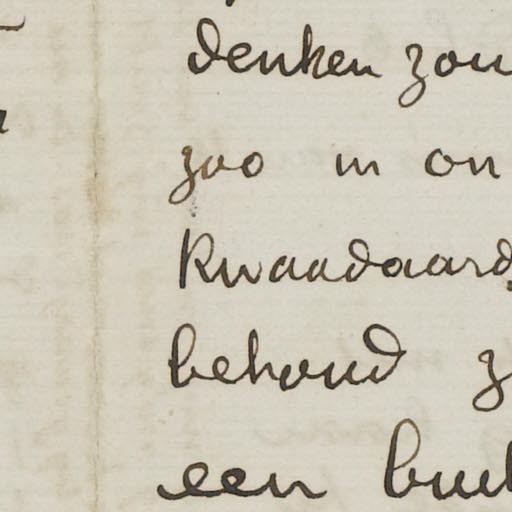 denken zou
zoo in on
kwaadaard
behoud z
een buit